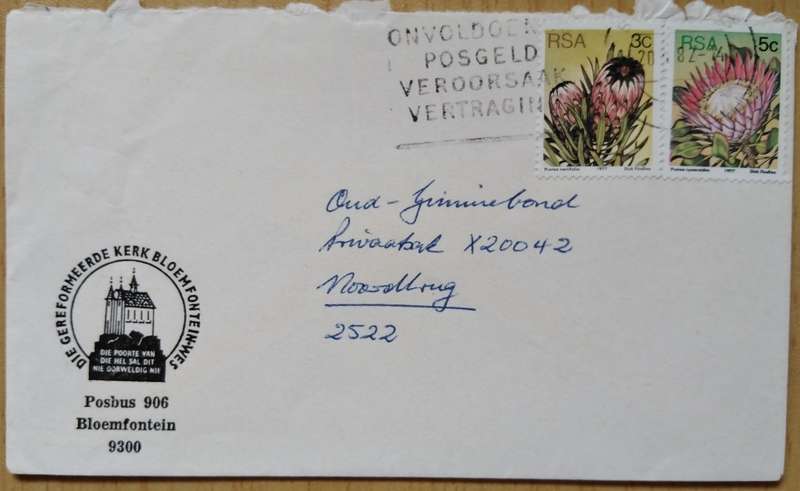 ONVOLDOEN
POSGELD
VEROORSAAK
VERTRAGIN
RSA 3c
RSA 5c
20
82
1977 Dick Findlay
1977 Dick Findlay
Privaatsak X20042
Noordbrug
2522
DIE GEREFORMEERDE KERK BLOEMFONTEIN-WES
DIE POORTE VAN
DIE HEL SAL DIT
NIE OORWELDIG NIE
Posbus 906
Bloemfontein
9300